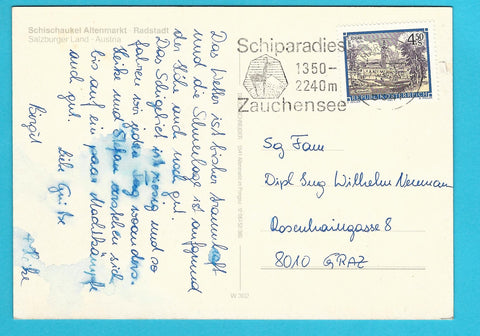 Schischaukel Altenmarkt - Radstadt
Salzburger Land - Austria
Das Wetter ist bisher traumhaft
und die Schneelage ist aufgrund
der Höhe auch noch gut.
Das Schigebiet ist riesig und so
fahren wir jeden Tag woanders.
Heike und Stefan verstehen sich
bis auf ein paar Machtkämpfe
auch gut.
Liebe Grüße
Birgit
Schiparadies
1350-
2240m
Zauchensee
4.50
REPUBLIK ÖSTERREICH
Sg Fam
Dipl Ing Wilhelm Neumann
Rosenhaingasse 8
8010 GRAZ